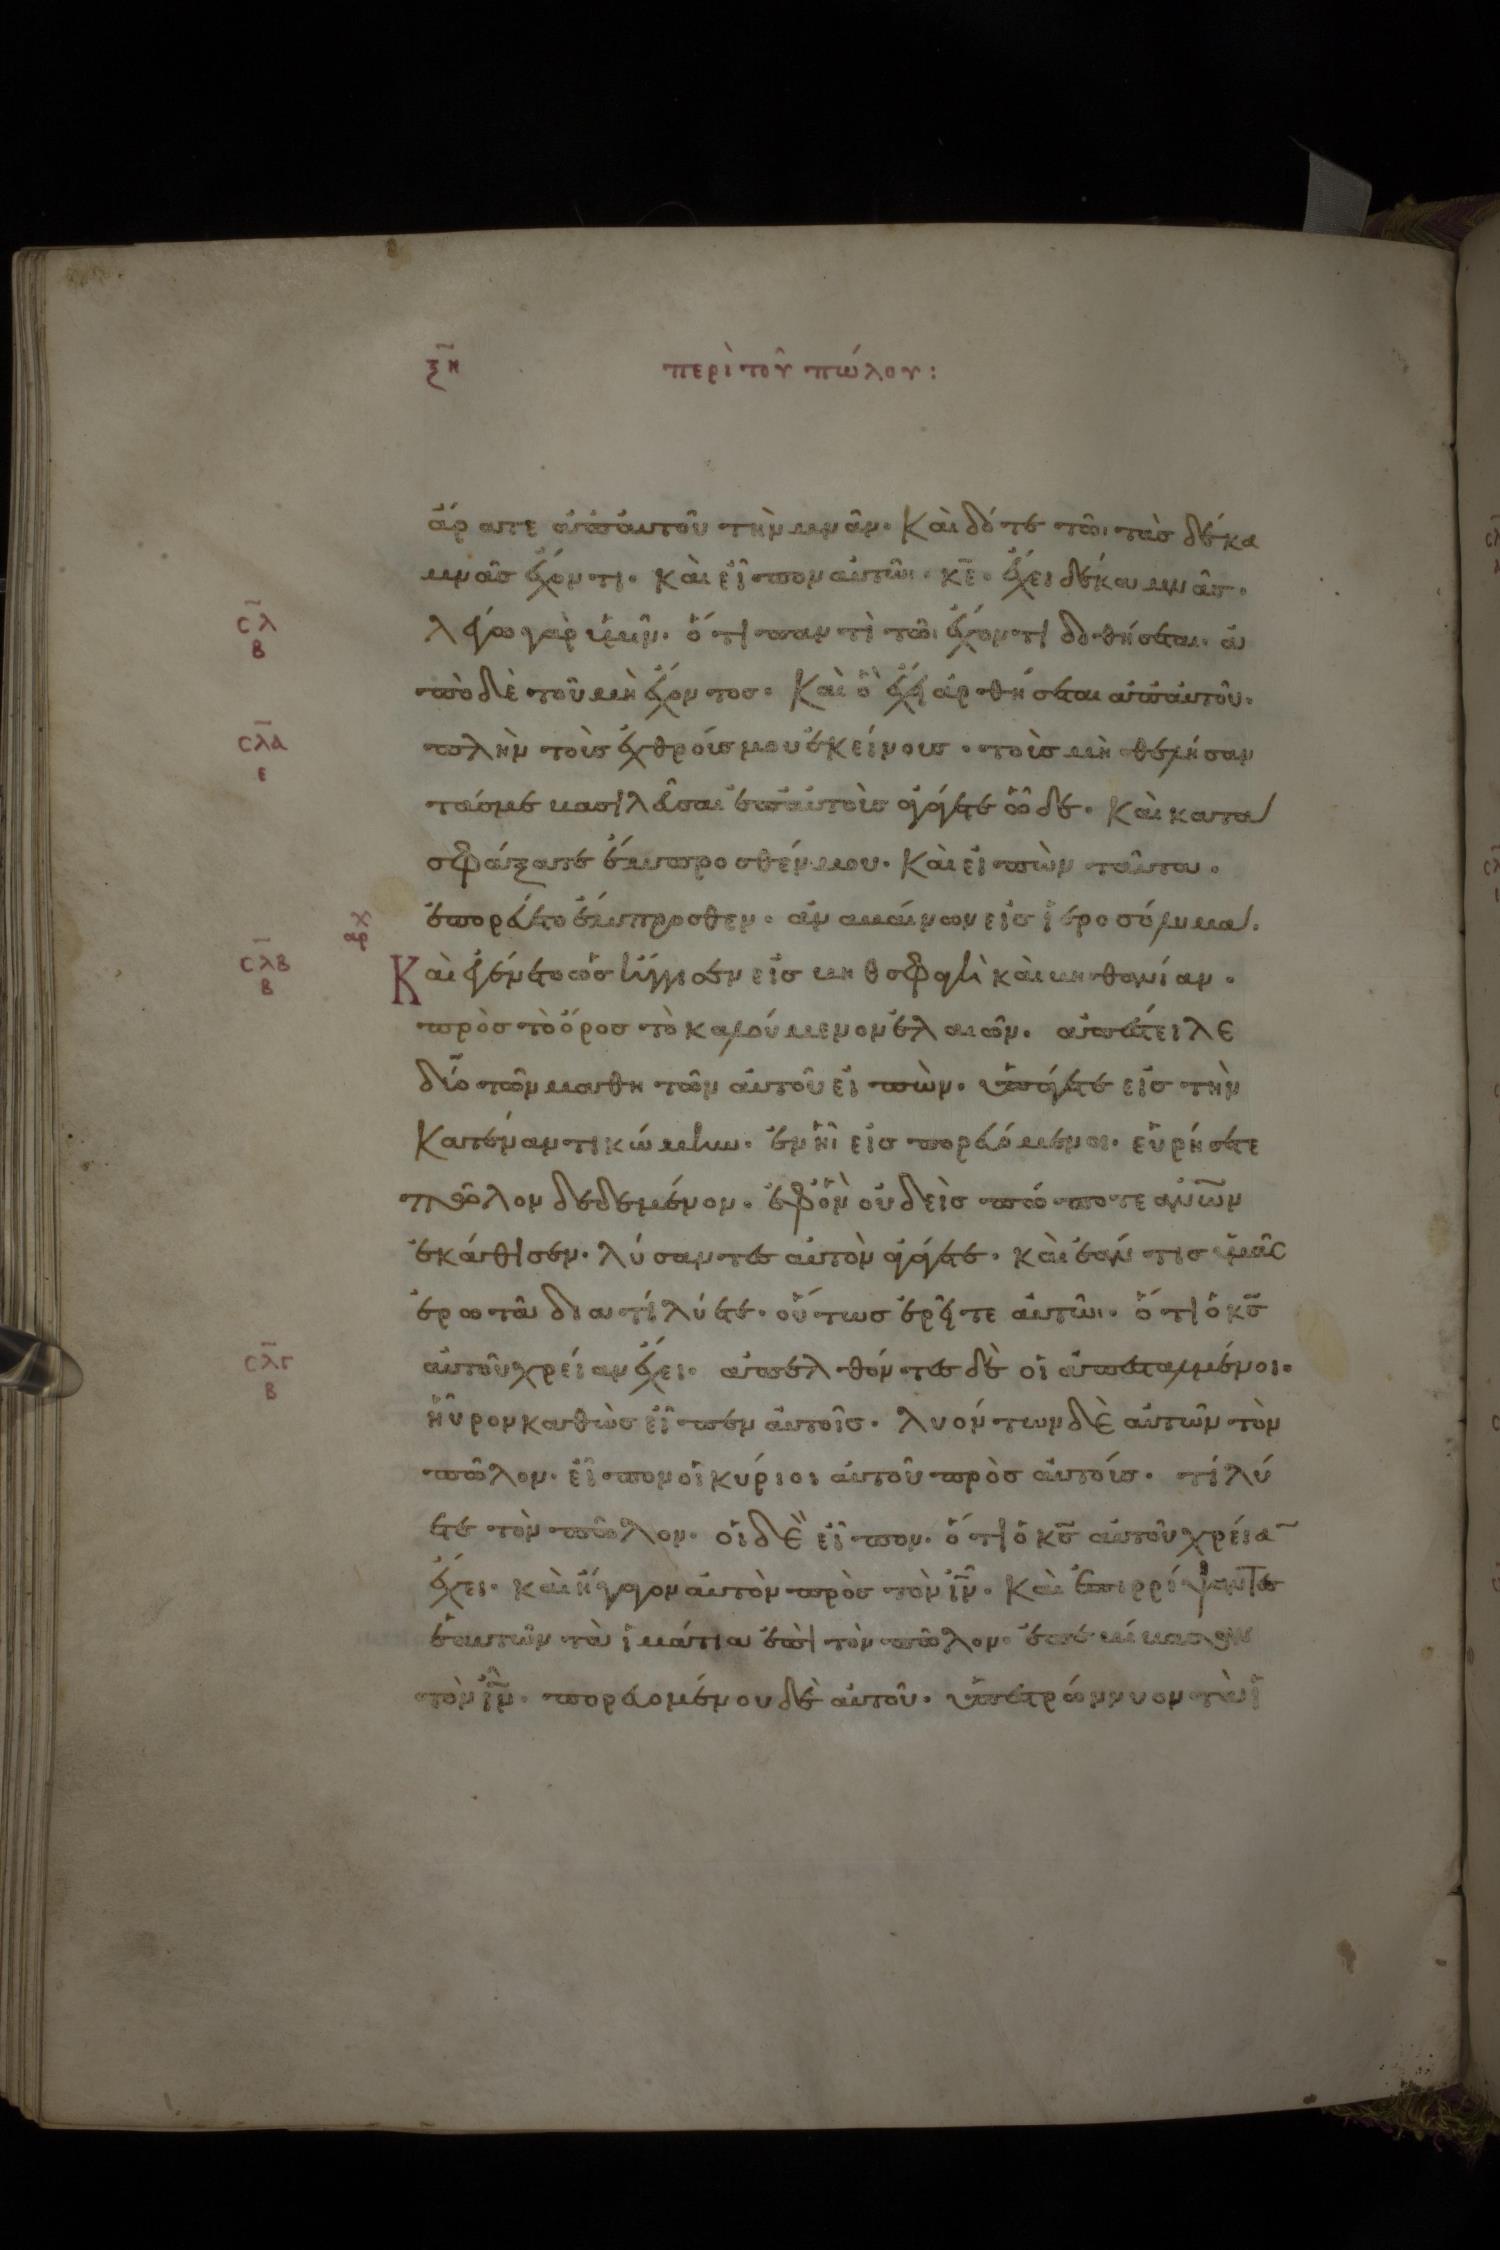 ξη περὶ τοῦ πώλου:
ἄρατε ἀπ αὐτοῦ τὴν μνᾶν. Καὶ δότε τῶι τὰσ δέκα
μνᾶσ ἔχοντι. καὶ εἶπον αὐτῶι. κε. ἔχει δέκα μνᾶσ.
σλ
β
λέγω γὰρ ὑμῖν. ὅτι παντὶ τῶι ἔχοντι δοθήσεται. ἀ
πὸ δὲ τοῦ μὴ ἔχοντοσ. Καὶ ὃ ἔχει ἀρθήσεται ἀπ αὐτοῦ.
σλα
ε
πλὴν τοὺσ ἐχθρούσ μου ἐκείνουσ. τοὺσ μὴ θελήσαν
τασ με βασιλεῦσαι ἐπ αὐτοὺσ ἀγάγετε ὧδε. Καὶ κατα
σφάξατε ἔμπροσθέν μου. Καὶ εἰπὼν ταῦτα.
ἐπορεύετο ἔμπροσθεν. ἀναβαίνων εἰσ ἱεροσόλυμα.
αρχ
σλβ
β
Καὶ ἐγένετο ὡσ ἤγγισεν εἰσ βηθσφαγὶ καὶ βηθανίαν.
πρὸσ τὸ ὄροσ τὸ καλούμενον ἐλαιῶν. ἀπέστειλε
δύο τῶν μαθητῶν αὐτοῦ εἰπὼν. ὑπάγετε εἰσ τὴν
κατέναντι κώμην. ἐν ἧι εἰσπορευόμενοι. εὑρήσετε
πῶλον δεδεμένον. ἐφ ὃν οὐδεὶσ πώποτε ανων
ἐκάθισεν. λύσαντεσ αὐτὸν ἀγάγετε. καὶ ἐάν τισ ὑμᾶσ
ἐρωτᾶ διατί λύετε. οὕτωσ ἐρεῖτε αὐτῶι. ὅτι ὁ κσ
σλγ
β
αὐτοῦ χρείαν ἔχει. ἀπελθόντεσ δὲ οἱ ἀπεσταλμένοι.
ηὗρον καθὼσ εἶπεν αὐτοῖσ. λυόντων δὲ αὐτῶν τὸν
πῶλον. εἶπον οἱ κύριοι αὐτοῦ πρὸσ αὐτούσ. τί λύ
ετε τὸν πῶλον. οἱ δὲ εἶπον. ὅτι ὁ κσ αὐτοῦ χρεία̅
ἔχει. καὶ ἤγαγον αὐτὸν πρὸσ τὸν ιν. Καὶ ἐπιρρίψαντεσ
ἑαυτῶν τὰ ἱμάτια ἐπὶ τὸν πῶλον. ἐπεβίβασαν
τὸν ιν. πορευομένου δὲ αὐτοῦ. ὑπεστρώννυον τὰ ἱ